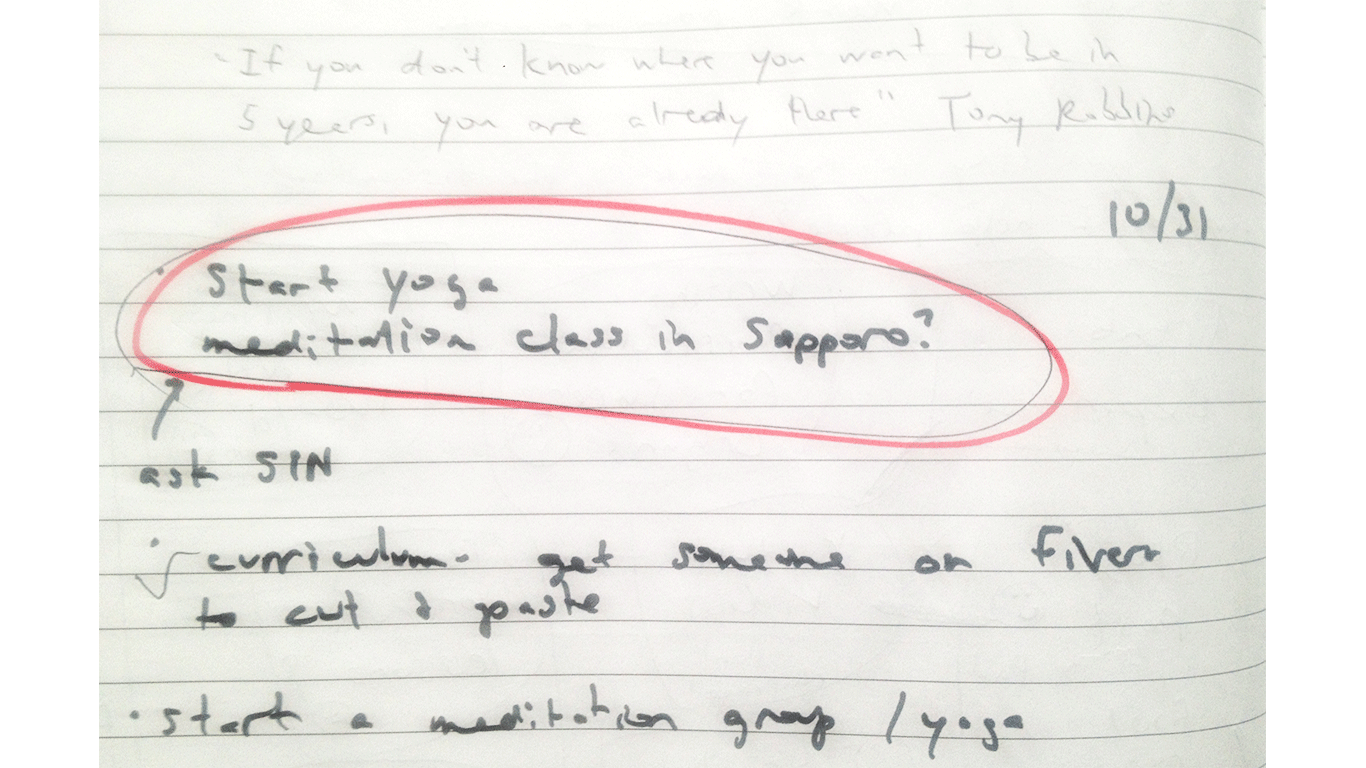 "If you don't know where you want to be in
5 years, you are already there" Tony Robbins
10/31
· Start yoga
meditation class in Sapporo?
ask SIN
· curriculum - get someone on Fiverr
to cut & paste
· start a meditation group / yoga